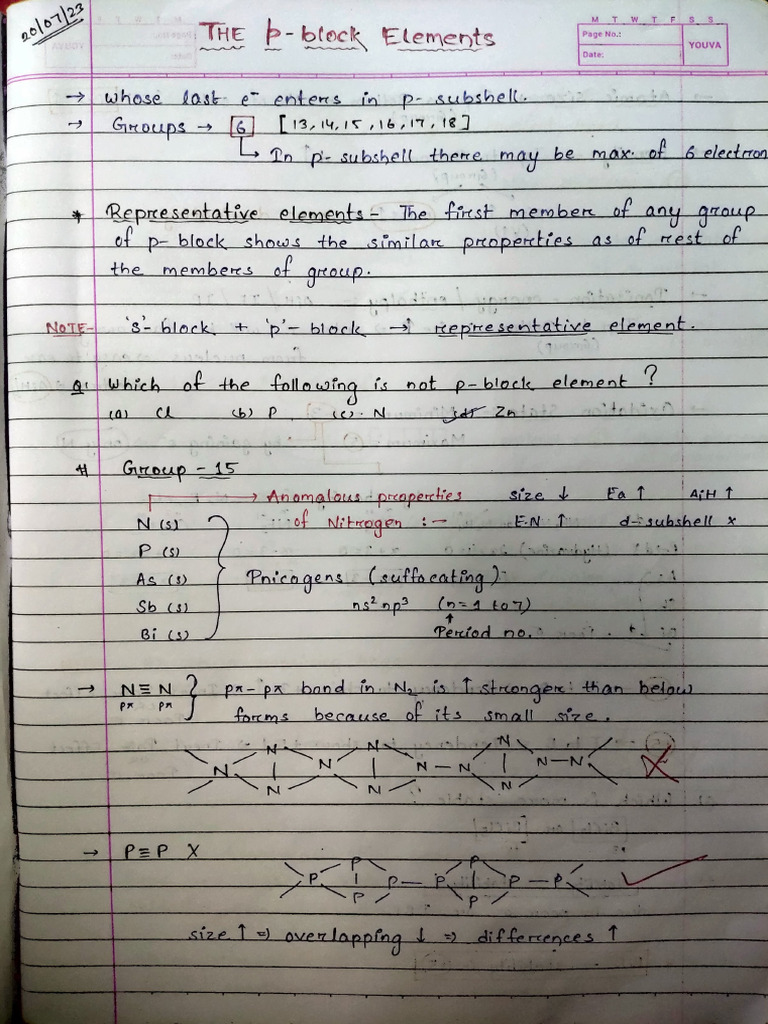 20/07/23
THE p-block Elements
M T W T F S S
Page No.:
Date:
YOUVA
→ Whose last e⁻ enters in p-subshell.
→ Groups → 6 [13, 14, 15, 16, 17, 18]
↳ In 'p'-subshell there may be max. of 6 electron
* Representative elements - The first member of any group
of p-block shows the similar properties as of rest of
the members of group.
NOTE- 's'-block + 'p'-block → representative element.
Q: Which of the following is not p-block element ?
(a) Cl (b) P (c) N (d) Zn
# Group - 15
→ Anomalous properties size ↓ Ea ↑ ΔiH ↑
N (s) of Nitrogen :- E.N ↑ d-subshell x
P (s)
As (s) Pnicogens (suffocating)
Sb (s) ns² np³ (n=1 to 7)
Bi (s) Period no.
→ N≡N } pπ-pπ bond in N₂ is ↑ stronger than below
pπ pπ forms because of its small size.
N N N N N N N N N N N
→ P≡P X
P P P P P P P P
size ↑ ⇒ overlapping ↓ ⇒ differences ↑